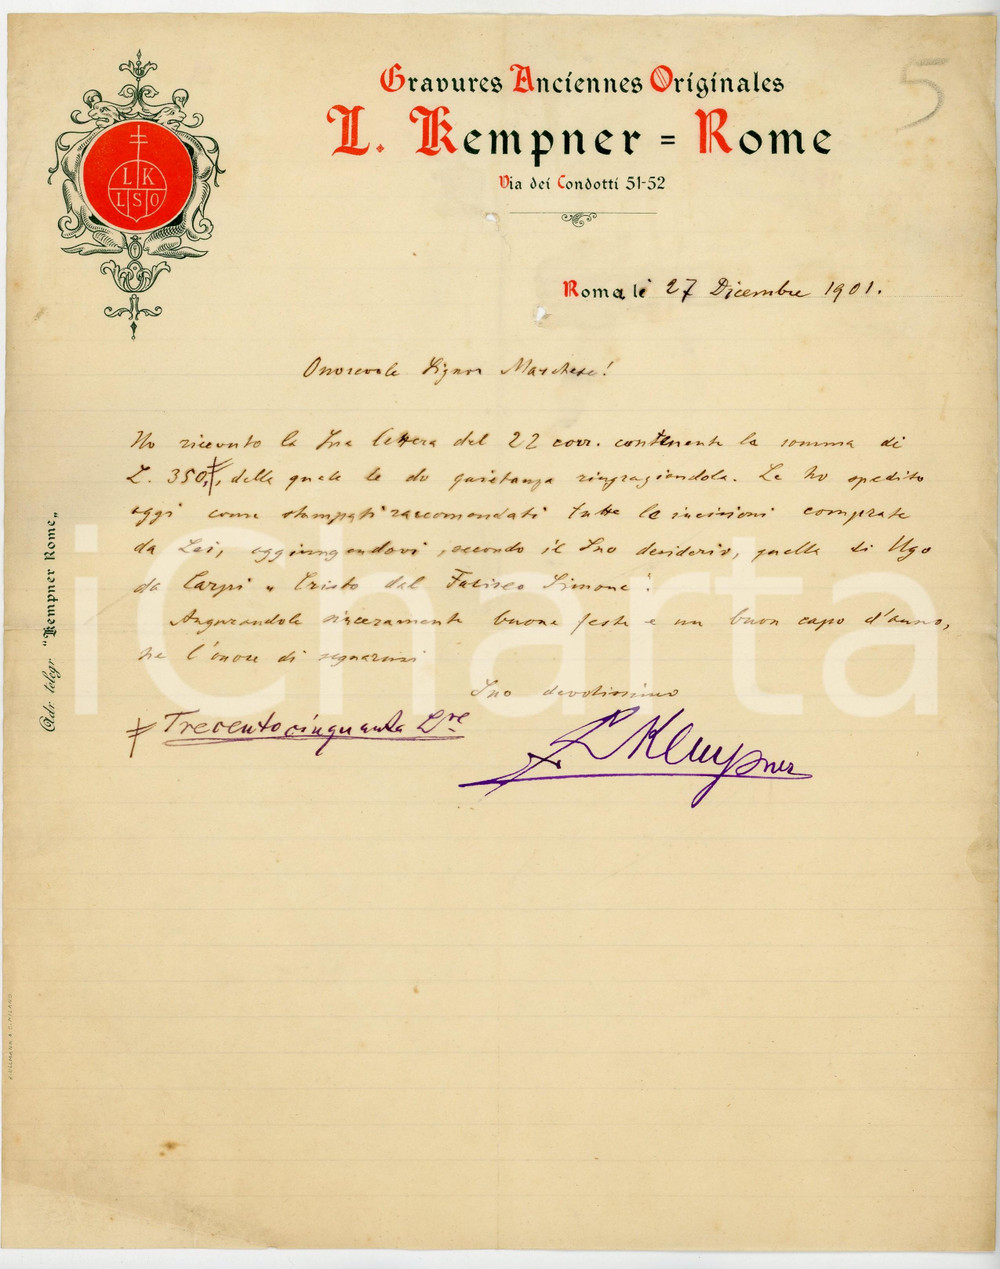 Gravures Anciennes Originales
L. Kempner = Rome
Via dei Condotti 51-52
5
L K
L S O
Roma lì 27 Dicembre 1901.
Onorevole Signor Marchese!
Ho ricevuto la Sua lettera del 22 corr. contenente la somma di
L. 350,‡, della quale le do quietanza ringraziandola. Le ho spedito
oggi come stampati raccomandati tutte le incisioni comprate
da Lei, aggiungendovi, secondo il Suo desiderio, quella di Ugo
da Carpi „Cristo dal Fariseo Simone".
Augurandole sinceramente buone feste e un buon capo d'anno,
ho l'onore di segnarmi
Suo devotissimo
‡ Trecentocinquanta Lre
L Kempner
Adr. telegr "Kempner Rome„
iCharta